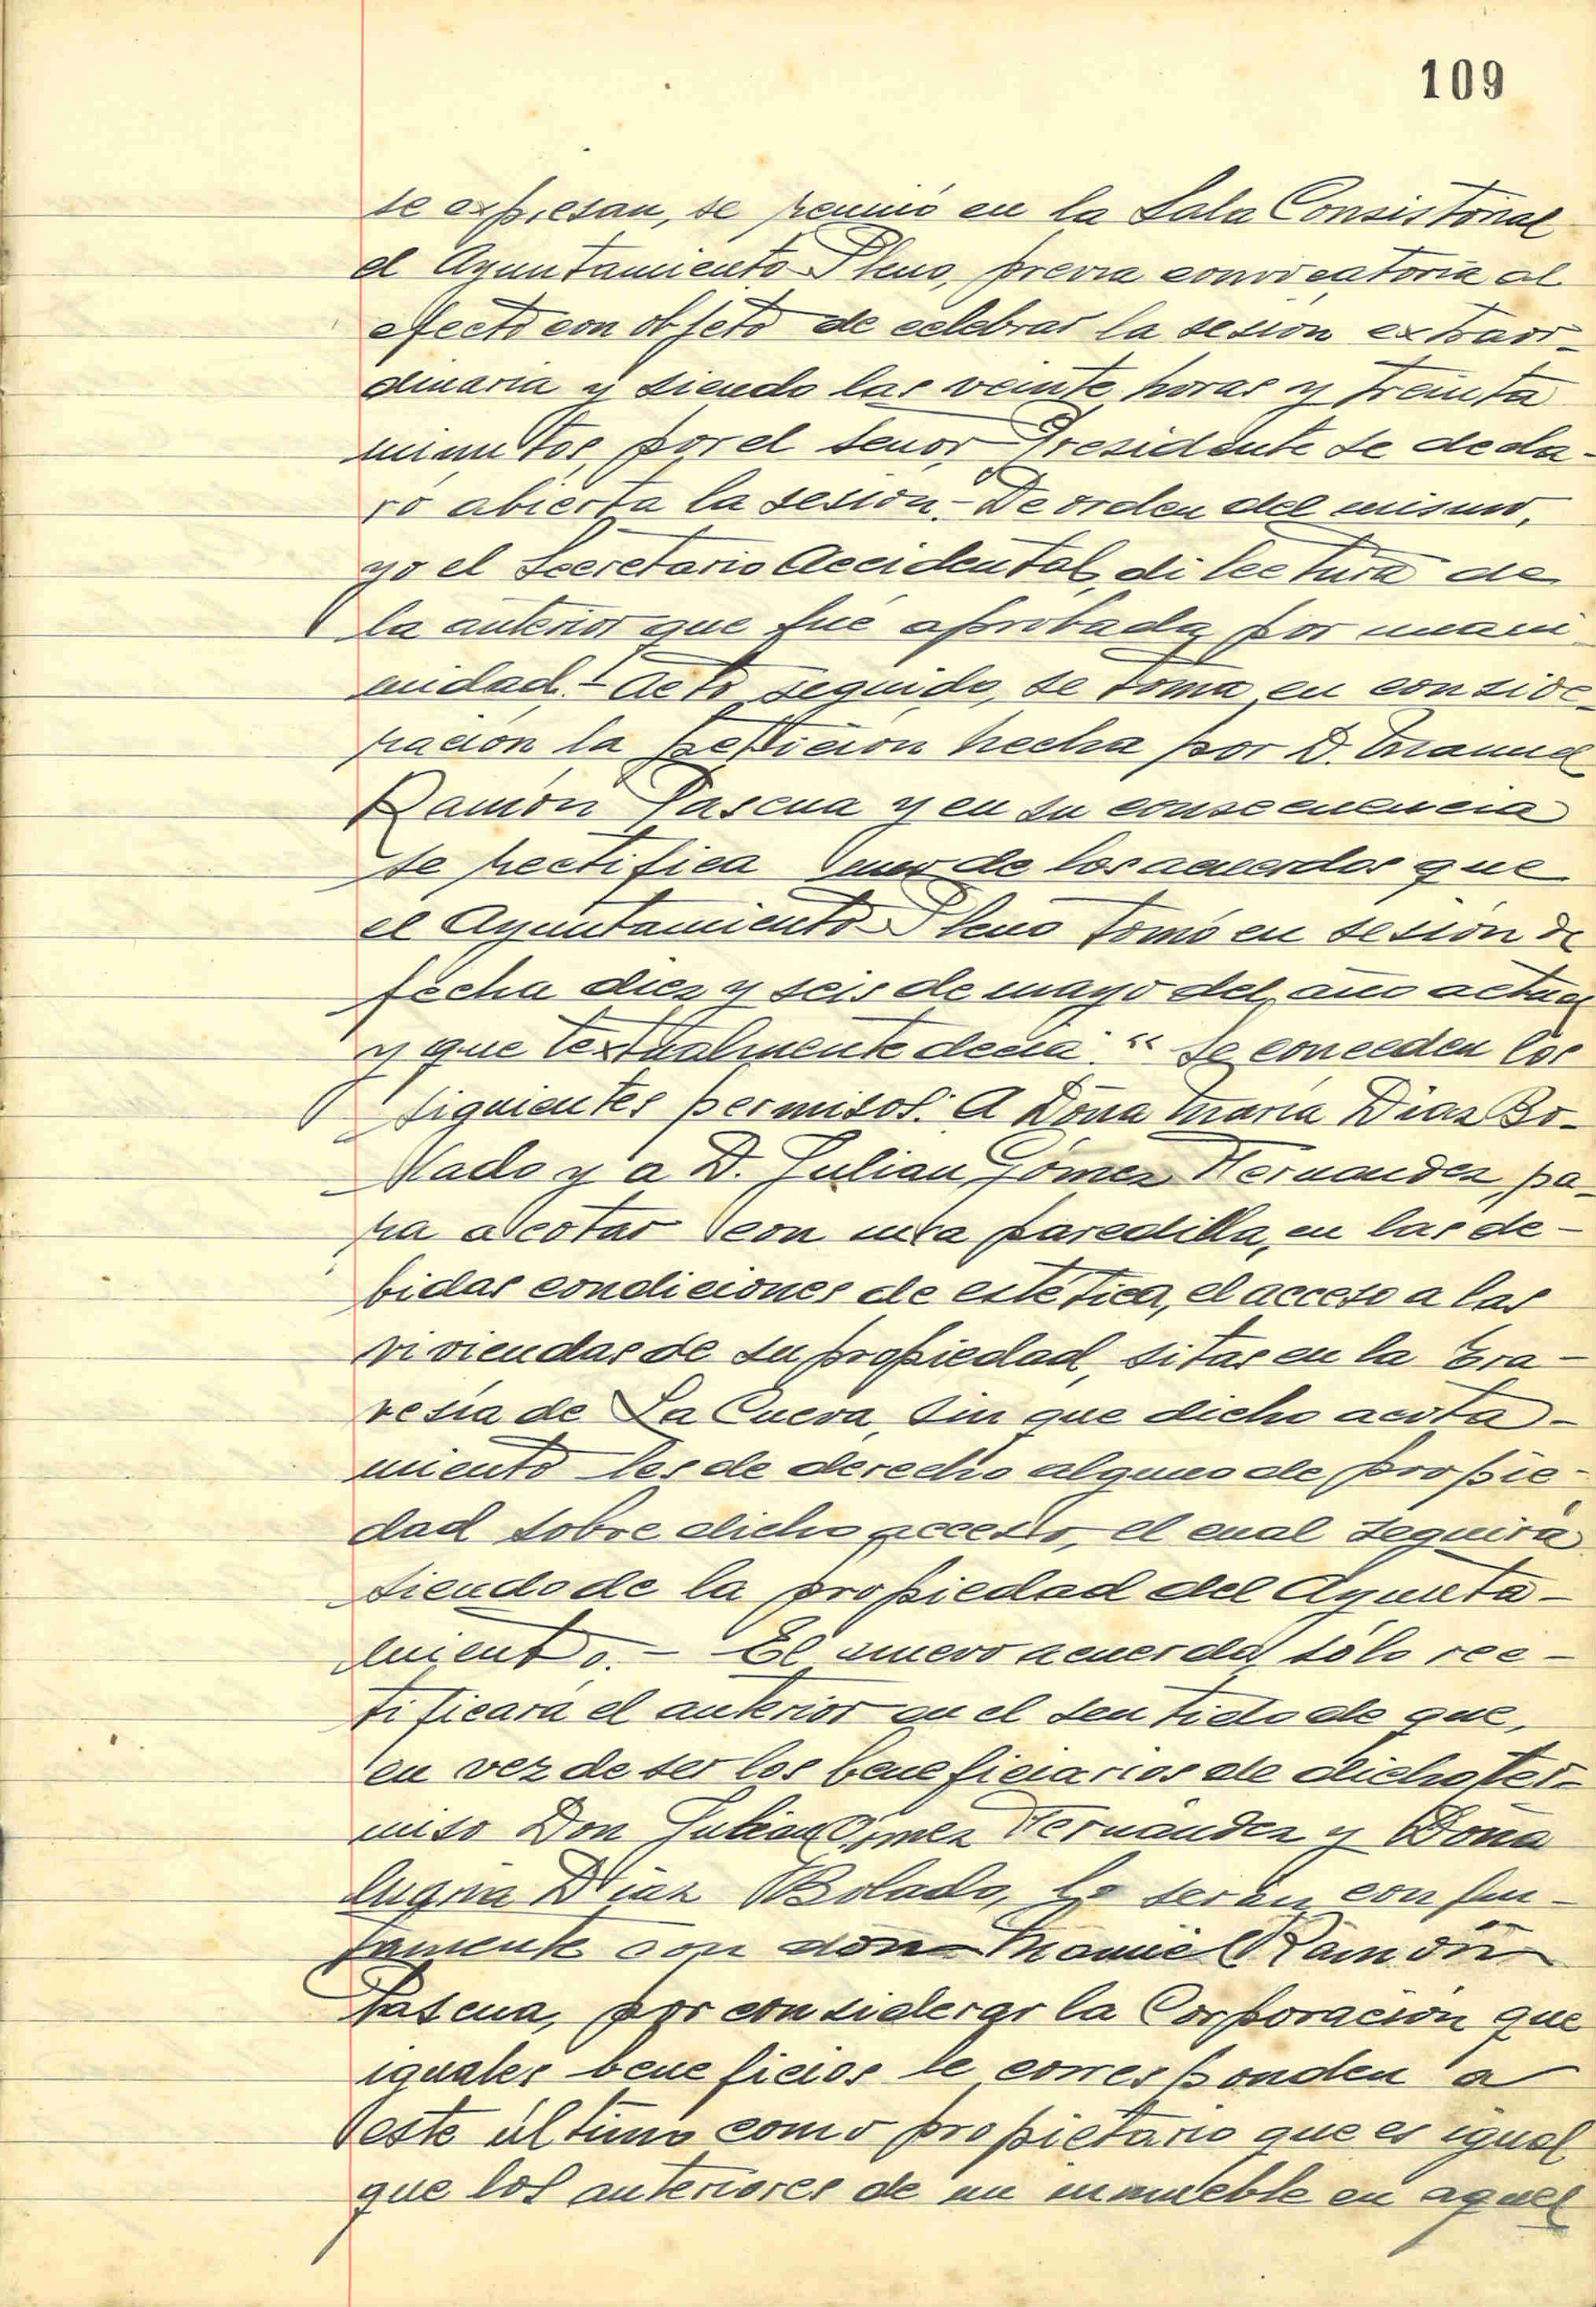 109
se expresan, se reunió en la Sala Consistorial
el Ayuntamiento Pleno, previa convocatoria al
efecto con objeto de celebrar la sesión extraor-
dinaria y siendo las veinte horas y treinta
minutos, por el señor Presidente se decla-
ró abierta la sesión.- De orden del mismo,
yo el Secretario Accidental, di lectura de
la anterior que fué aprobada por unani
midad.- Acto seguido, se toma en conside-
ración la petición hecha por D. Manuel
Ramón Pascua y en su consecuencia
se rectifica uno de los acuerdos que
el Ayuntamiento Pleno tomó en sesión de
fecha diez y seis de mayo del año actual
y que textualmente decía: "Se conceden los
siguientes permisos: A Doña María Díaz Bo-
lado y a D. Julian Gómez Hernández, pa-
ra acotar con una paredilla, en las de-
bidas condiciones de estética, el acceso a las
viviendas de su propiedad, sitas en la Tra-
vesía de La Cueva, sin que dicho acota-
miento les de derecho alguno de propie-
dad sobre dicho acceso, el cual seguirá
siendo de la propiedad del Ayunta-
miento.- El nuevo acuerdo, sólo rec-
tificará el anterior en el sentido de que,
en vez de ser los beneficiarios de dicho per-
miso Don Julian Gómez Hernández y Doña
María Díaz Bolado, lo serán conjun-
tamente con don Manuel Ramón
Pascua, por considerar la Corporación que
iguales beneficios le corresponden a
este último como propietario que es igual
que los anteriores de un inmueble en aquel